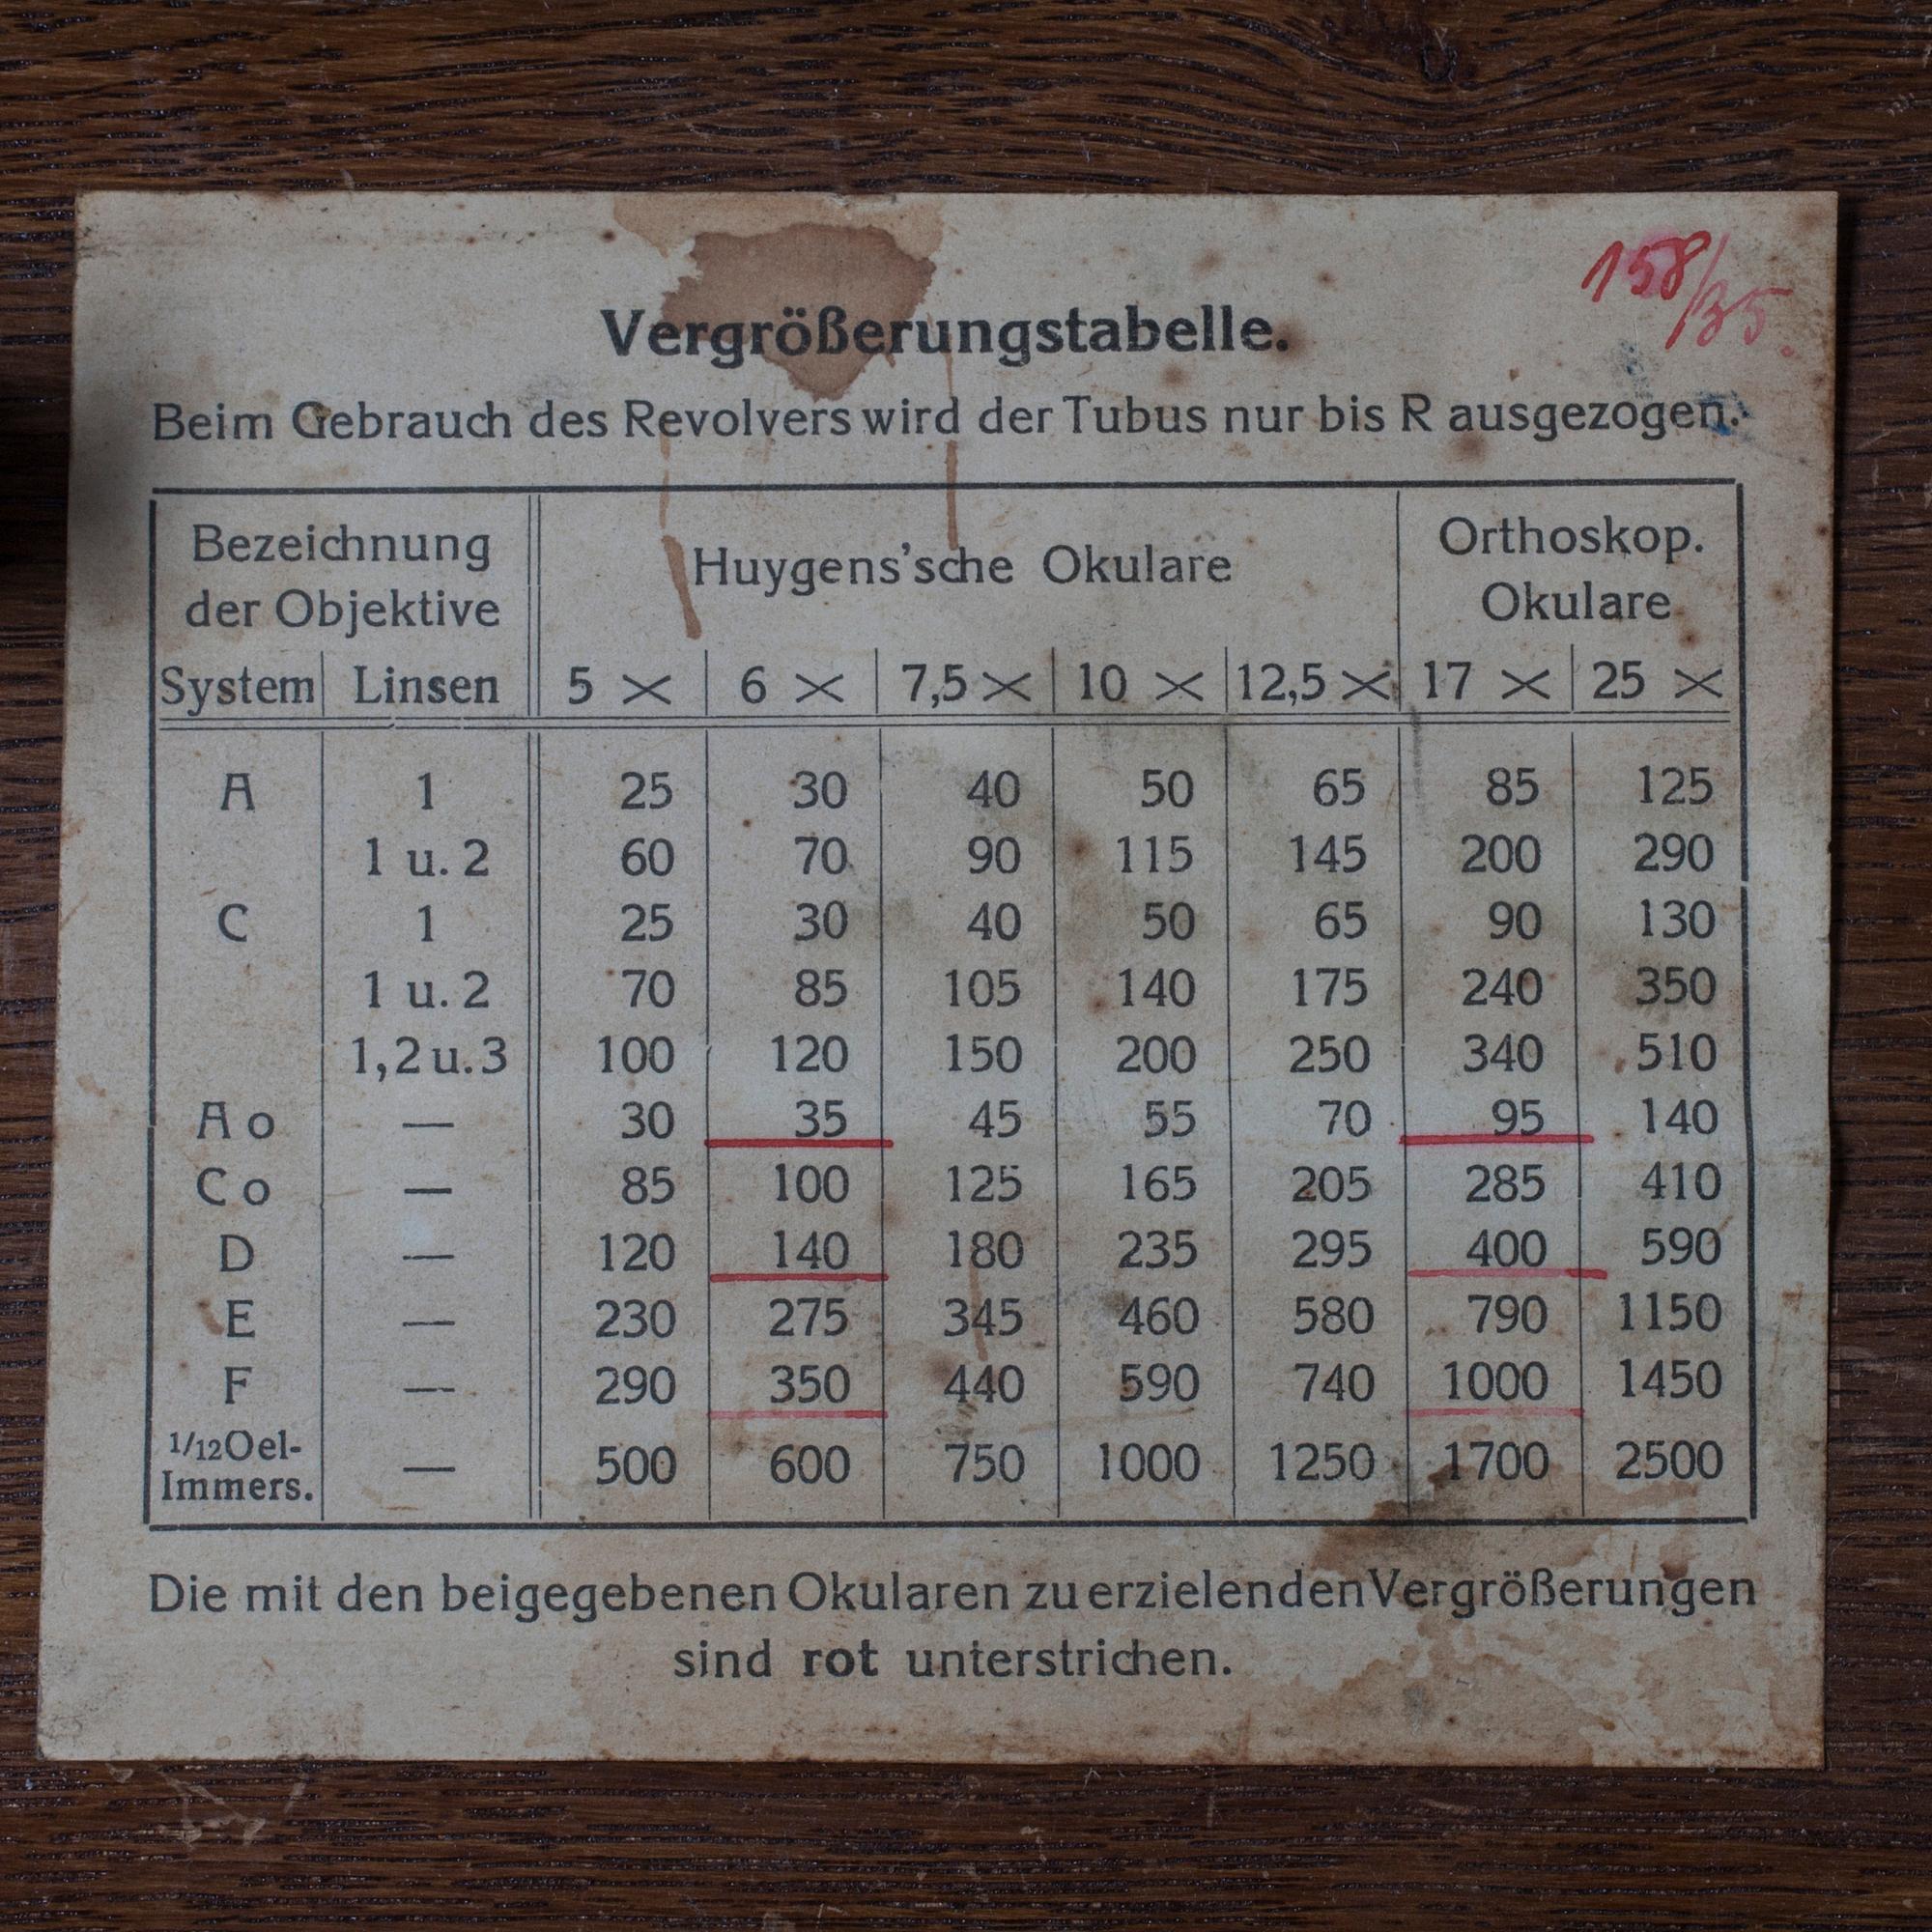 158/35.
Vergrößerungstabelle.
Beim Gebrauch des Revolvers wird der Tubus nur bis R ausgezogen.
Bezeichnung der Objektive Huygens'sche Okulare Orthoskop. Okulare
System Linsen 5 × 6 × 7,5 × 10 × 12,5 × 17 × 25 ×
A 1 25 30 40 50 65 85 125
1 u. 2 60 70 90 115 145 200 290
C 1 25 30 40 50 65 90 130
1 u. 2 70 85 105 140 175 240 350
1, 2 u. 3 100 120 150 200 250 340 510
A o — 30 35 45 55 70 95 140
C o — 85 100 125 165 205 285 410
D — 120 140 180 235 295 400 590
E — 230 275 345 460 580 790 1150
F — 290 350 440 590 740 1000 1450
1/12 Oel-Immers. — 500 600 750 1000 1250 1700 2500
Die mit den beigegebenen Okularen zu erzielenden Vergrößerungen
sind rot unterstrichen.